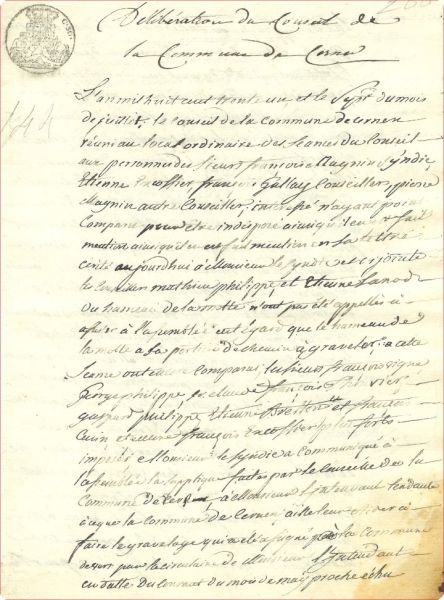 Délibération du Conseil de
la Commune de Cernex
144
L'an mil huit cent trente un et le sept du mois
de juillet, le Conseil de la Commune de Cernex
réuni au local ordinaire des séances du Conseil
aux personnes des sieurs françois Magnin Syndic,
Etienne Excoffier, françois Gallay Conseillers, pierre
Magnin autre Conseiller, n'ayant pas
Comparu pour être indisposé ainsi qu'il en a fait
mention ainsi qu'il en fait mention en la lettre
aujourd'hui à Monsieur le Syndic et
les Conseillers mathieu philippe et Etienne
du hameau de la motte n'ont pas été appellés
à l'assemblée eut égard que le hameau de
la motte a sa portion de chemin à graveler, à cette
Séance ont encore Comparus les sieurs françois vigne
George philippe françois
gaspard philippe Etienne et françois
et encore françois Excoffier plus forts
imposés Monsieur le Syndic a Communiqué à
l'assemblée la Supplique faite par le Conseil de la
Commune de à Monsieur l'Intendant tendante
à ce que la Commune de Cernex aille leur aider à
faire le gravelage qui a été assigné à la Commune
par la circulaire de Monsieur l'Intendant
en datte du du mois de may proche échu